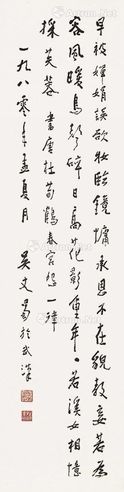 早被婵娟误欲妆临镜慵承恩不在貌教妾若为
容风暖鸟声碎日高花影重年年若溪女相忆
采芙蓉 书唐杜荀鹤春宫怨一律
一九八零年孟夏月 吴丈蜀於武汉